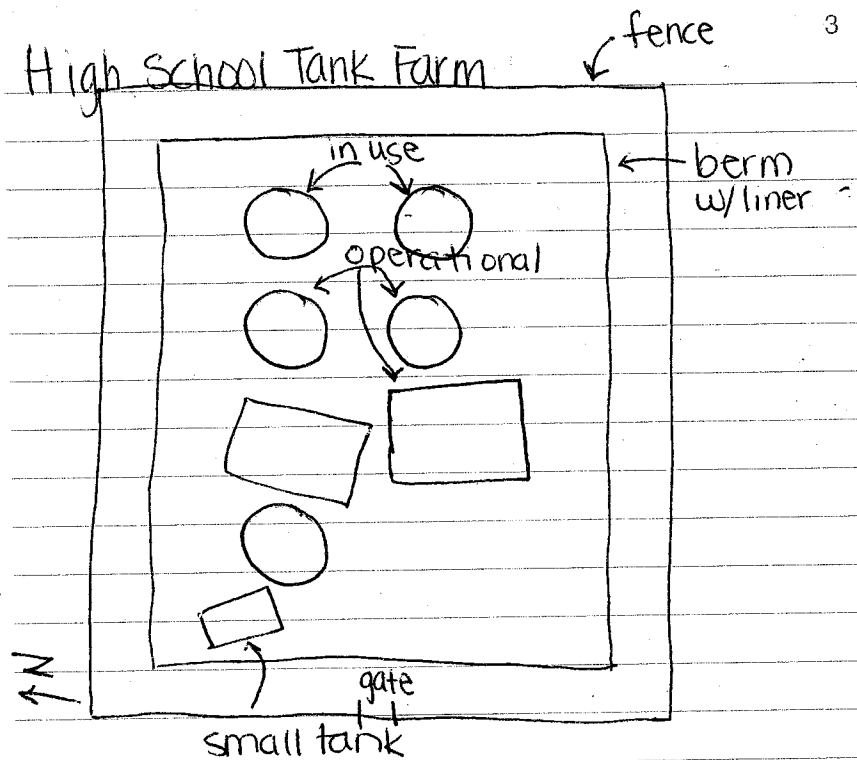 3
fence
High School Tank Farm
in use
berm
w/liner
operational
N
gate
small tank